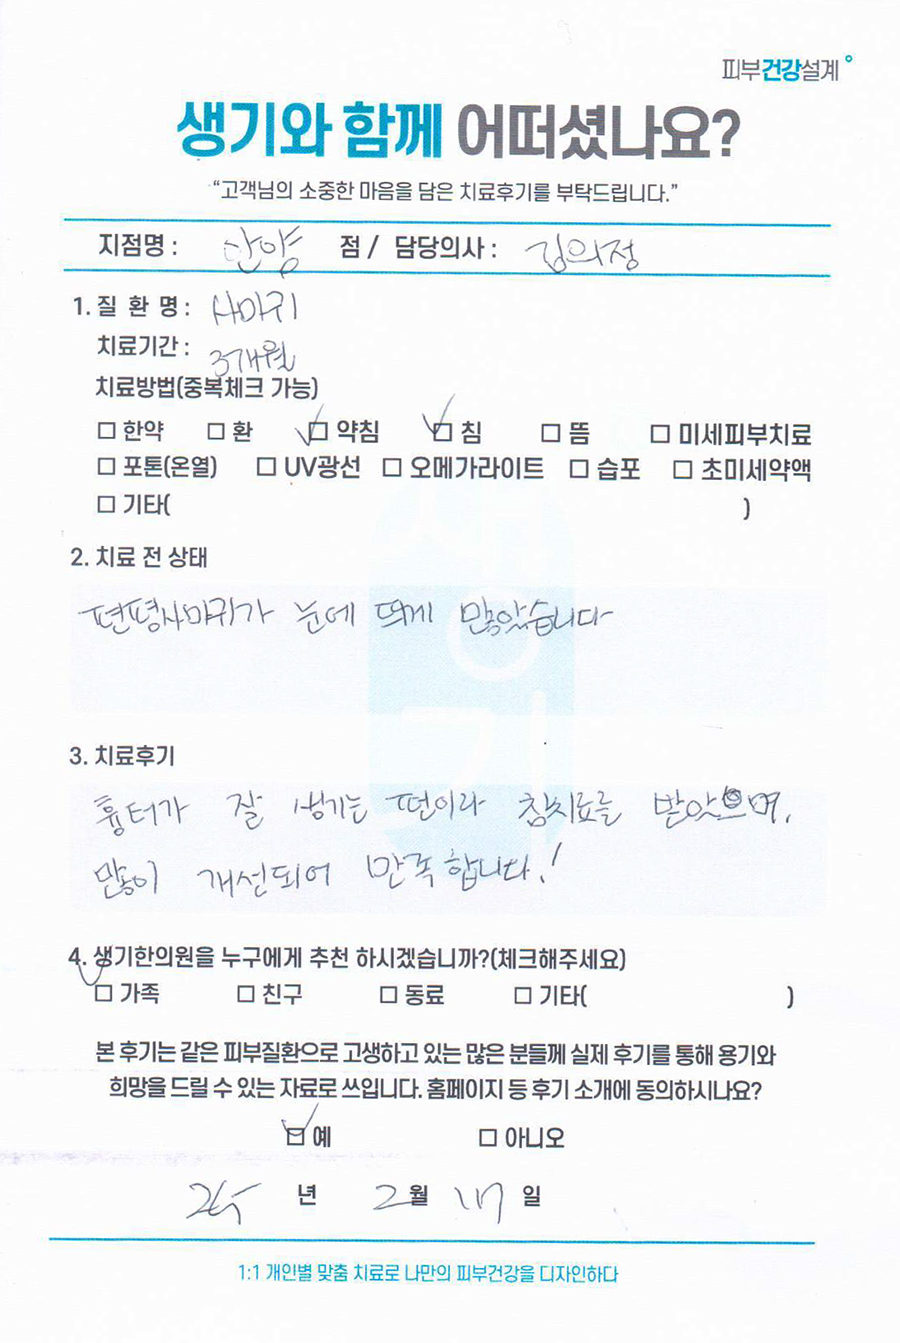 피부건강설계
생기와 함께 어떠셨나요?
“고객님의 소중한 마음을 담은 치료후기를 부탁드립니다.”
지점명 : 안양 점 / 담당의사 : 김의정
1. 질 환 명 : 사마귀
치료기간 : 3개월
치료방법(중복체크 가능)
□ 한약 □ 환 ☑ 약침 ☑ 침 □ 뜸 □ 미세피부치료
□ 포톤(온열) □ UV광선 □ 오메가라이트 □ 습포 □ 초미세약액
□ 기타( )
2. 치료 전 상태
편평사마귀가 눈에 띄게 많았습니다
3. 치료후기
흉터가 잘 생기는 편이라 침치료를 받았으며,
많이 개선되어 만족합니다!
4. 생기한의원을 누구에게 추천 하시겠습니까?(체크해주세요)
☑ 가족 □ 친구 □ 동료 □ 기타( )
본 후기는 같은 피부질환으로 고생하고 있는 많은 분들께 실제 후기를 통해 용기와
희망을 드릴 수 있는 자료로 쓰입니다. 홈페이지 등 후기 소개에 동의하시나요?
☑ 예 □ 아니오
25 년 2 월 17 일
1:1 개인별 맞춤 치료로 나만의 피부건강을 디자인하다
생기